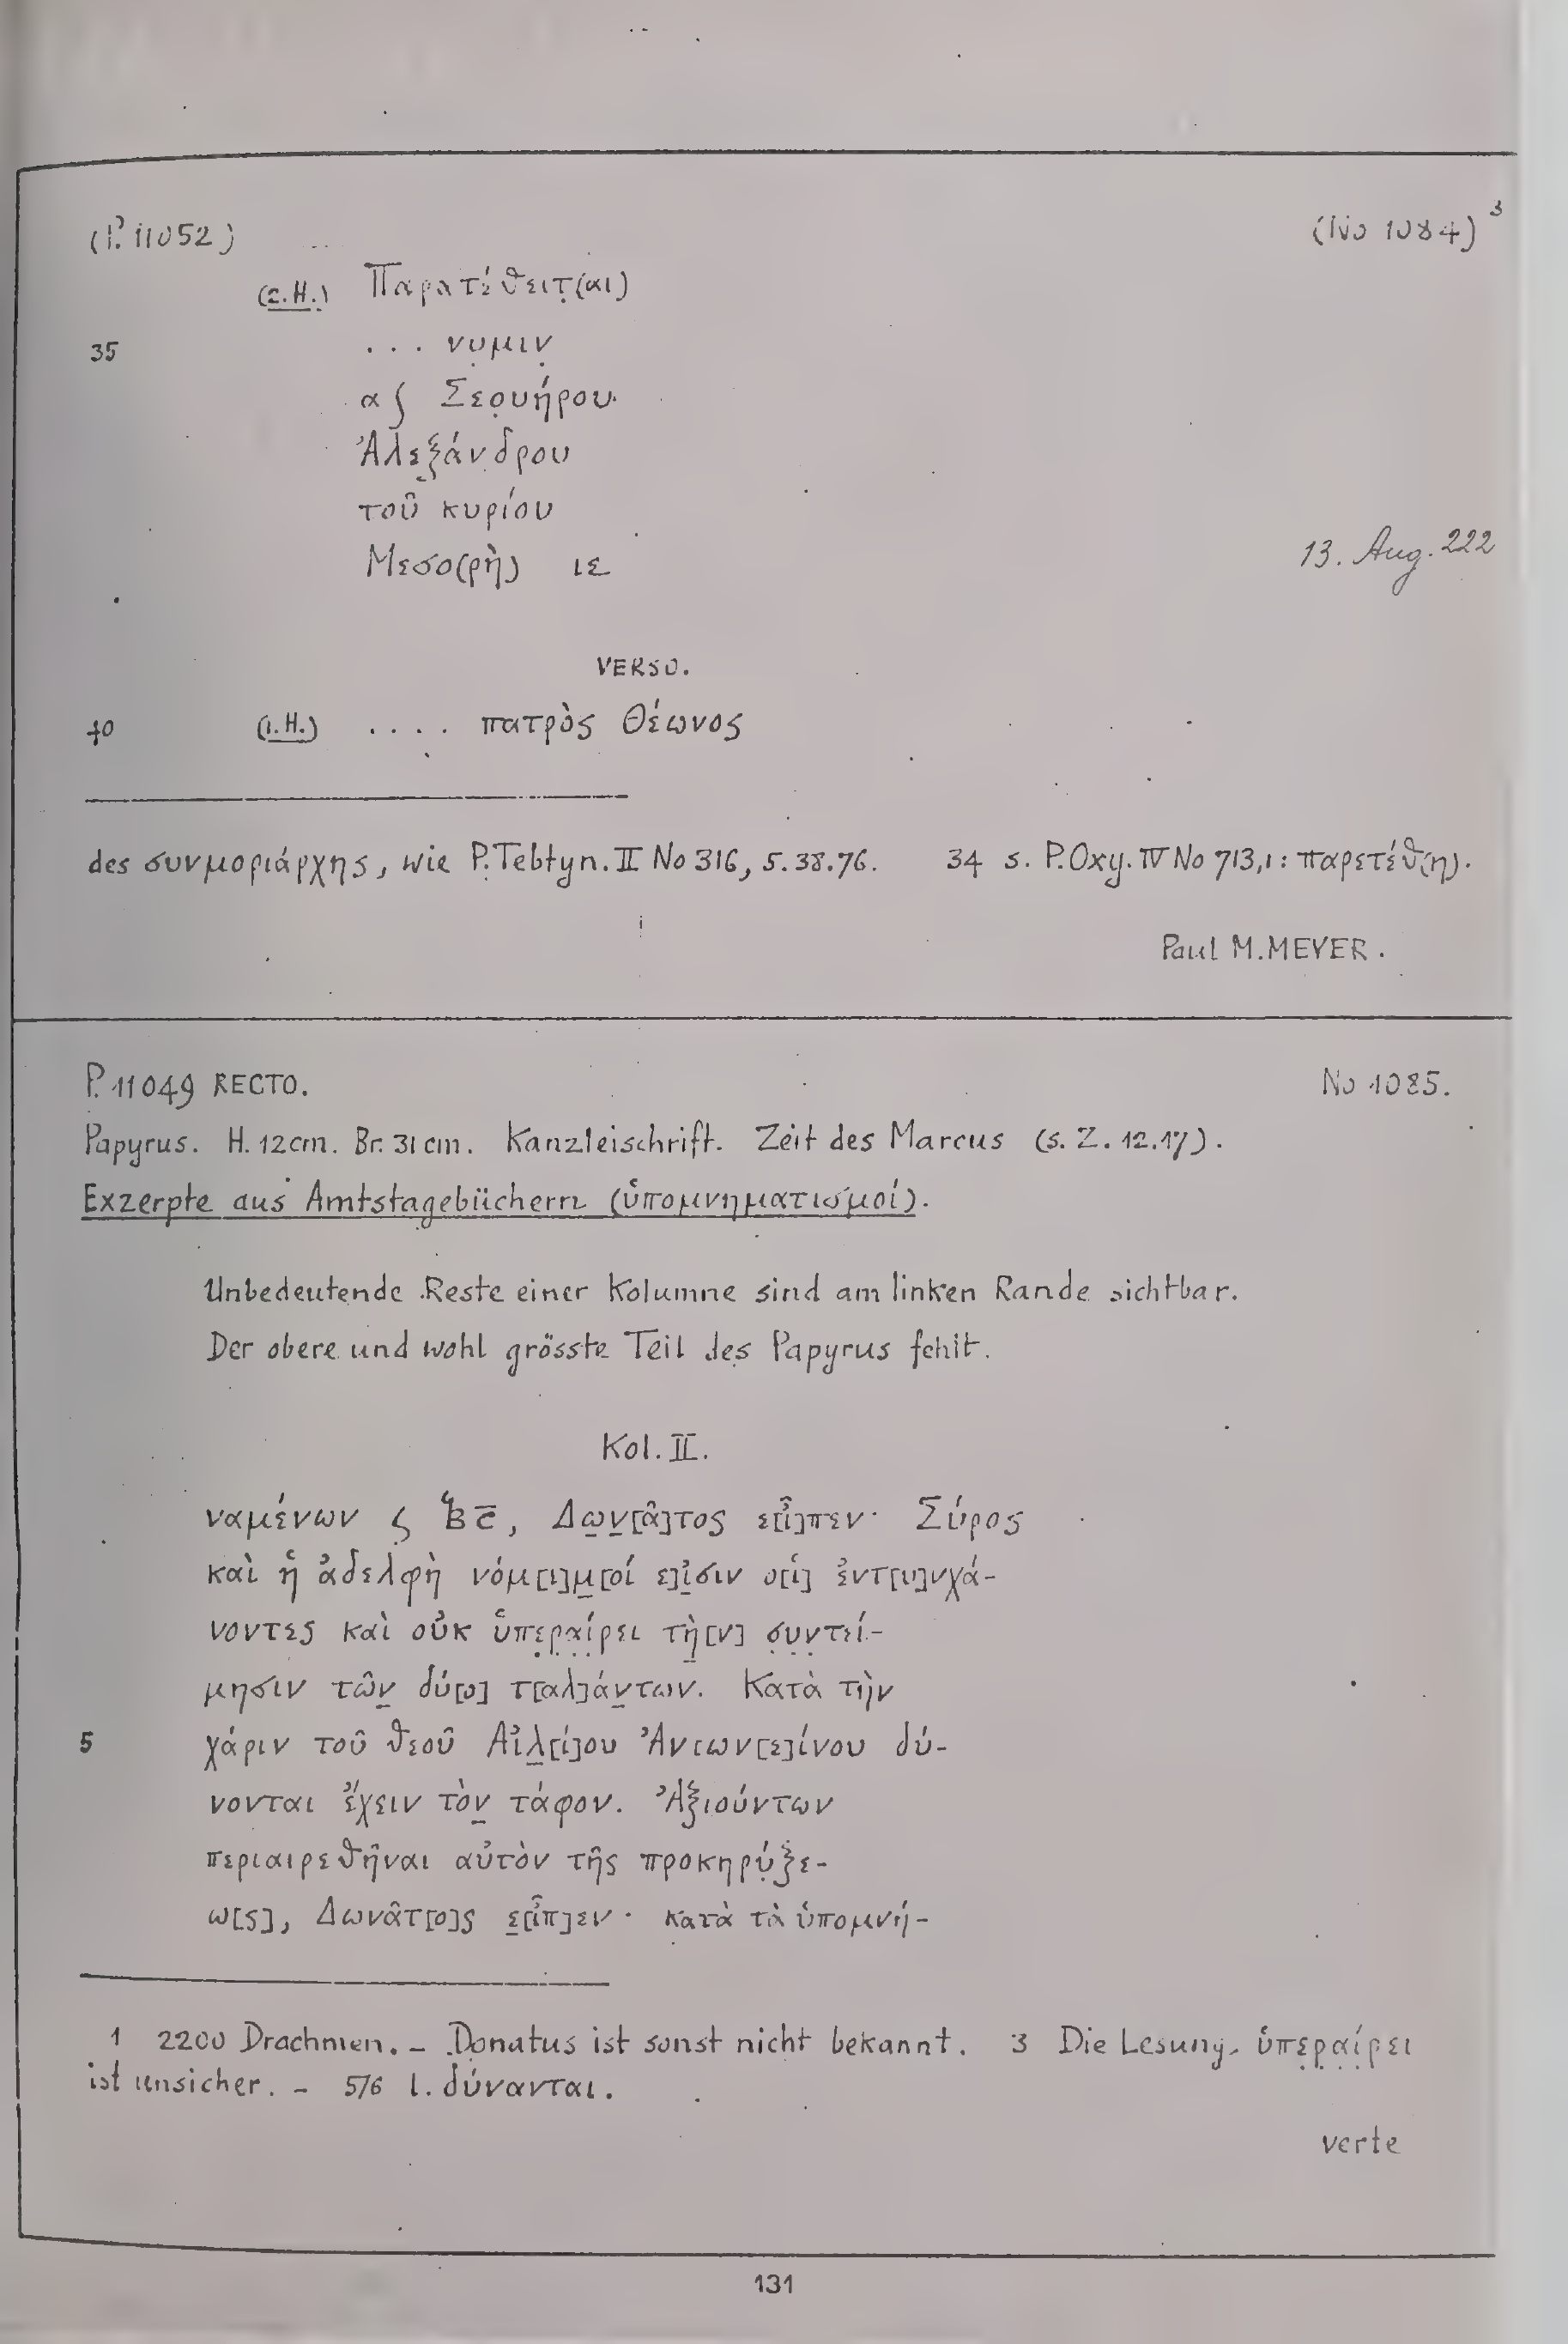 (P. 11052) (No 1084) 3
(2.H.) Παρατέθειτ̣(αι)
35 . . . νυ̣μιν̣
α ʃ Σεο̣υήρου
Ἀλεξ̣άνδρου
τοῦ κυρίου
Μεσο(ρὴ) ιε 13. Aug. 222
VERSO.
40 (1.H.) . . . . πατρὸς Θέωνος
des συνμοριάρχης, wie P.Tebtyn. II No 316, 5.38.76. 34 s. P.Oxy. IV No 713,1: παρετέθ(η).
Paul M. MEYER.
P. 11049 RECTO. No 1085.
Papyrus. H. 12cm. Br. 31cm. Kanzleischrift. Zeit des Marcus (s. Z. 12.17).
Exzerpte aus Amtstagebüchern (ὑπομνηματισμοί).
Unbedeutende Reste einer Kolumne sind am linken Rande sichtbar.
Der obere und wohl grösste Teil des Papyrus fehlt.
Kol. II.
ναμένων Δων[ᾶ]τος ε[ἶ]πεν· Σύρος
καὶ ἡ ἀδελφὴ νόμ[ι]μ[οί ε]ἰσιν ο[ἱ] ἐντ[υ]νχά-
νοντες καὶ οὐκ ὑπε̣ρ̣α̣ί̣ρει τὴ[ν] σ̣υ̣ν̣τεί-
μησιν τῶν δύ[ο] τ[αλ]άντων. Κατὰ τὴν
5 χάριν τοῦ θεοῦ Αἰλ[ί]ου Ἀντων[ε]ίνου δύ-
νονται ἔχειν τὸν τάφον. Ἀξιούντων
περιαιρεθῆναι αὐτὸν τῆς προκηρύ̣ξε-
ω[ς], Δωνᾶτ[ο]ς ε[ἶπ]εν· κατὰ τὰ ὑπομνή-
1 2200 Drachmen. – Donatus ist sonst nicht bekannt. 3 Die Lesung ὑπε̣ρ̣α̣ί̣ρει
ist unsicher. – 5/6 l. δύνανται.
verte
131